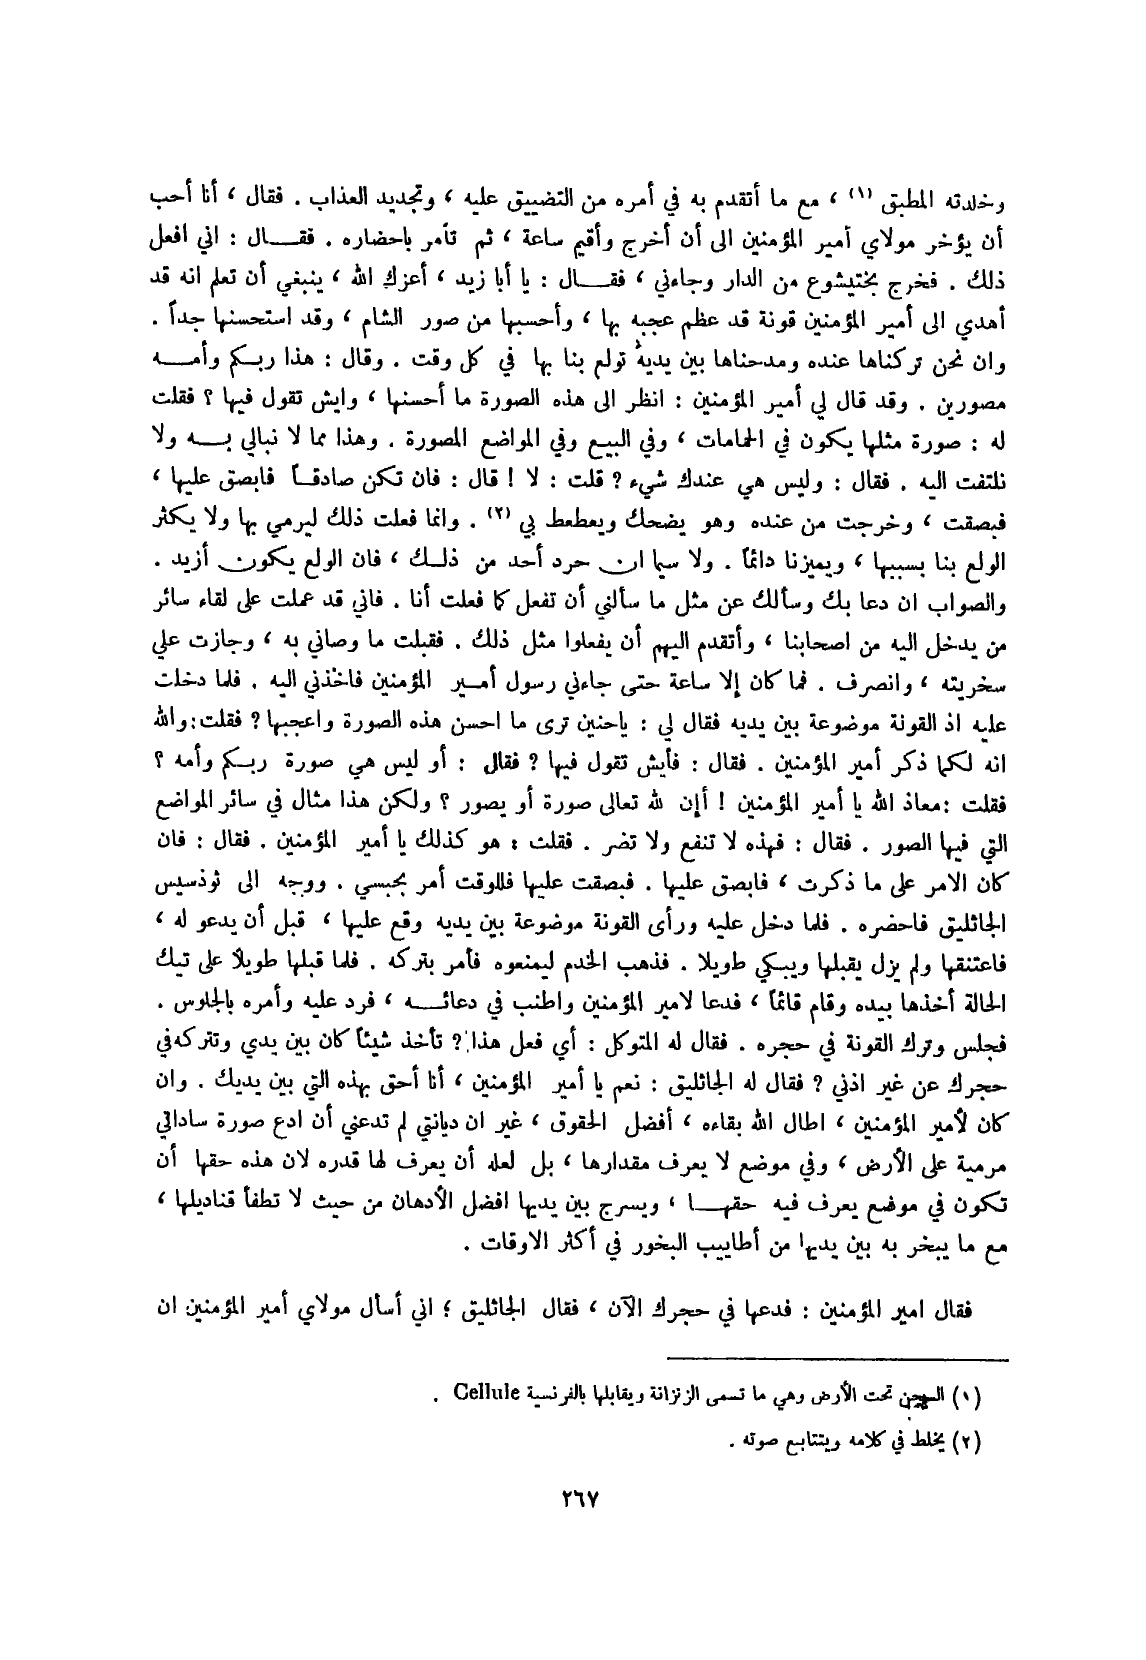 وخلدته المطبق (١) ، مع ما أتقدم به في أمره من التضييق عليه ، وتجديد العذاب . فقال ، أنا أحب
أن يؤخر مولاي أمير المؤمنين الى أن أخرج وأقيم ساعة ، ثم تأمر باحضاره . فقال : اني افعل
ذلك . فخرج بختيشوع من الدار وجاءني ، فقال : يا أبا زيد ، أعزك الله ، ينبغي أن تعلم انه قد
أهدي الى أمير المؤمنين قونة قد عظم عجبه بها ، وأحسبها من صور الشام ، وقد استحسنها جداً .
وان نحن تركناها عنده ومدحناها بين يديه تولع بنا بها في كل وقت . وقال : هذا ربكم وأمه
مصورين . وقد قال لي أمير المؤمنين : انظر الى هذه الصورة ما أحسنها ، وايش تقول فيها ؟ فقلت
له : صورة مثلها يكون في الحمامات ، وفي البيع وفي المواضع المصورة . وهذا مما لا نبالي به ولا
نلتفت اليه . فقال : وليس هي عندك شيء ? قلت : لا ! قال : فان تكن صادقاً فابصق عليها ،
فبصقت ، وخرجت من عنده وهو يضحك ويعطعط بي (٢) . وانما فعلت ذلك ليرمي بها ولا يكثر
الولع بنا بسببها ، ويميزنا دائماً . ولا سيما ان حرد أحد من ذلك ، فان الولع يكون أزيد .
والصواب ان دعا بك وسألك عن مثل ما سألني أن تفعل كما فعلت أنا . فاني قد عملت على لقاء سائر
من يدخل اليه من اصحابنا ، وأتقدم اليهم أن يفعلوا مثل ذلك . فقبلت ما وصاني به ، وجازت علي
سخريته ، وانصرف . فما كان إلا ساعة حتى جاءني رسول أمير المؤمنين فاخذني اليه . فلما دخلت
عليه اذ القونة موضوعة بين يديه فقال لي : ياحنين ترى ما احسن هذه الصورة واعجبها ? فقلت:والله
انه لكما ذكر أمير المؤمنين . فقال : فأيش تقول فيها ? فقال : أو ليس هي صورة ربكم وأمه ؟
فقلت :معاذ الله يا أمير المؤمنين ! أإن لله تعالى صورة أو يصور ؟ ولكن هذا مثال في سائر المواضع
التي فيها الصور . فقال : فهذه لا تنفع ولا تضر . فقلت : هو كذلك يا أمير المؤمنين . فقال : فان
كان الامر على ما ذكرت ، فابصق عليها . فبصقت عليها فللوقت أمر بحبسي . ووجه الى ثوذسيس
الجاثليق فاحضره . فلما دخل عليه ورأى القونة موضوعة بين يديه وقع عليها ، قبل أن يدعو له ،
فاعتنقها ولم يزل يقبلها ويبكي طويلا . فذهب الخدم ليمنعوه فأمر بتركه . فلما قبلها طويلاً على تيك
الحالة أخذها بيده وقام قائماً ، فدعا لامير المؤمنين واطنب في دعائه ، فرد عليه وأمره بالجلوس .
فجلس وترك القونة في حجره . فقال له المتوكل : أي فعل هذا ? تأخذ شيئاً كان بين يدي وتتركه في
حجرك عن غير اذني ? فقال له الجاثليق : نعم يا أمير المؤمنين ، أنا أحق بهذه التي بين يديك . وان
كان لأمير المؤمنين ، اطال الله بقاءه ، أفضل الحقوق ، غير ان ديانتي لم تدعني أن ادع صورة ساداتي
مرمية على الأرض ، وفي موضع لا يعرف مقدارها ، بل لعله أن يعرف لها قدره لان هذه حقها أن
تكون في موضع يعرف فيه حقها ، ويسرج بين يديها افضل الأدهان من حيث لا تطفأ قناديلها ،
مع ما يبخر به بين يديها من أطاييب البخور في أكثر الاوقات .
فقال امير المؤمنين : فدعها في حجرك الآن ، فقال الجاثليق ؛ اني أسأل مولاي أمير المؤمنين ان
(١) السجن تحت الأرض وهي ما تسمى الزنزانة ويقابلها بالفرنسية Cellule .
(٢) يخلط في كلامه ويتتابع صوته .
٢٦٧